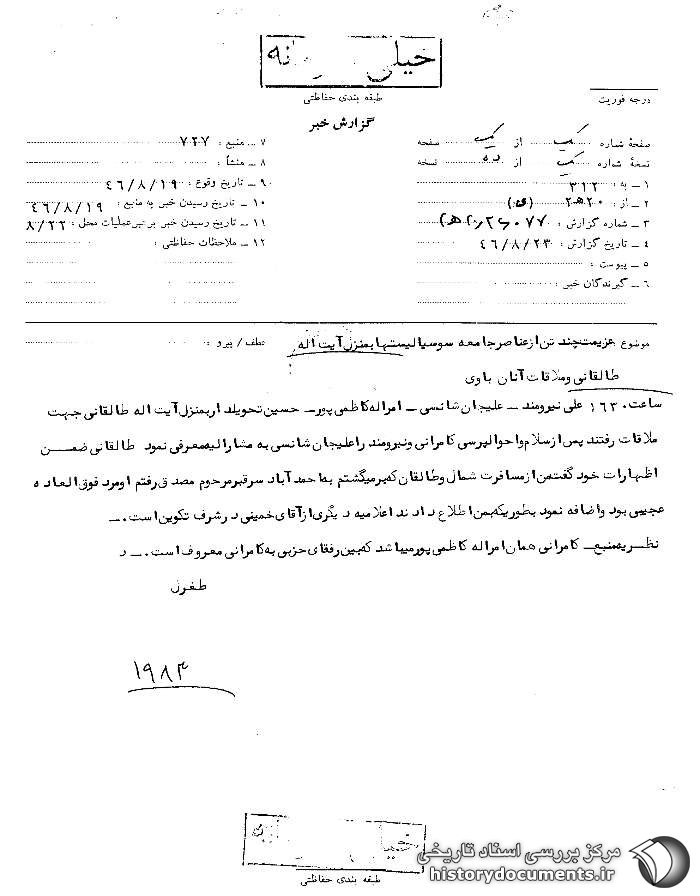 خیلی
طبقه بندی حفاظتی
درجه فوریت
گزارش خبر
صفحهٔ شماره یک از یک صفحه
نسخهٔ شماره یک از ده نسخه
۱ ــ به : ۳۱۲
۲ ــ از : ۲۰ه‍ ۲
۳ ــ شماره گزارش :
۴ ــ تاریخ گزارش : ۴۶/۸/۲۳
۵ ــ پیوست :
۶ ــ گیرندگان خبر :
۷ ــ منبع : ۷۲۷
۸ ــ منشأ :
۹ ــ تاریخ وقوع : ۴۶/۸/۱۹
۱۰ ــ تاریخ رسیدن خبر به منبع : ۴۶/۸/۱۹
۱۱ ــ تاریخ رسیدن خبر برهبر عملیات محل : ۸/۲۲
۱۲ ــ ملاحظات حفاظتی :
موضوع عزیمت چند تن از عناصر جامعه سوسیالیستها بمنزل آیت اله
عطف / پیرو :
طالقانی و ملاقات آنان با وی
ساعت ۱۶۳۰ علی نیرومند ــ علیجان شانسی ــ امراله کاظمی پور ــ حسین تحویلدار بمنزل آیت اله طالقانی جهت
ملاقات رفتند پس از سلام و احوالپرسی کامرانی و نیرومند را علیجان شانسی به مشارالیه معرفی نمود طالقانی ضمن
اظهارات خود گفت من از مسافرت شمال و طالقان که برمیگشتم به احمدآباد سر قبر مرحوم مصدق رفتم او مرد فوق العاده
عجیبی بود و اضافه نمود بطوریکه بمن اطلاع دادند اعلامیه دیگری از آقای خمینی در شرف تکوین است ــ
نظریه منبع ــ کامرانی همان امراله کاظمی پور میباشد که بین رفقای حزبی به کامرانی معروف است ــ د
طغرل
۱۹۸۴
طبقه بندی حفاظتی
مرکز بررسی اسناد تاریخی
historydocuments.ir